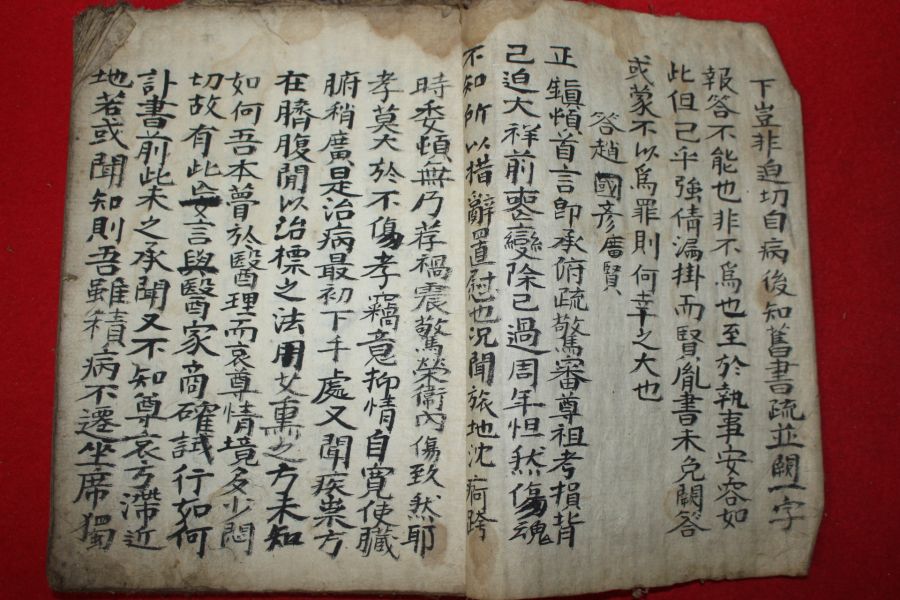 下豈非迫切自病後知舊書疏並闕一字
報答不能也非不爲也至於執事安容如
此但已乎強倩漏掛而賢胤書未免闕答
或蒙不以爲罪則何幸之大也
答趙國彦廣賢
正鎭頓首言卽承俯疏驚審尊祖考損背
已迫大祥前喪變除已過周年怛然傷魂
不知所以措辭四直慰也況聞旅地沈痾跨
時委頓無乃荐禍震驚榮衛內傷致然耶
孝莫大於不傷孝竊竟抑情自寬使臟
腑稍廣是治病最初下手處又聞疾祟方
在臍腹間以治標之法用艾熏之方未知
如何吾本瞢於醫理而哀尊情境多少悶
切故有此妄言與醫家商確試行如何
訃書前此未之承聞又不知尊哀方滯近
地若或聞知則吾雖積病不遷坐席獨